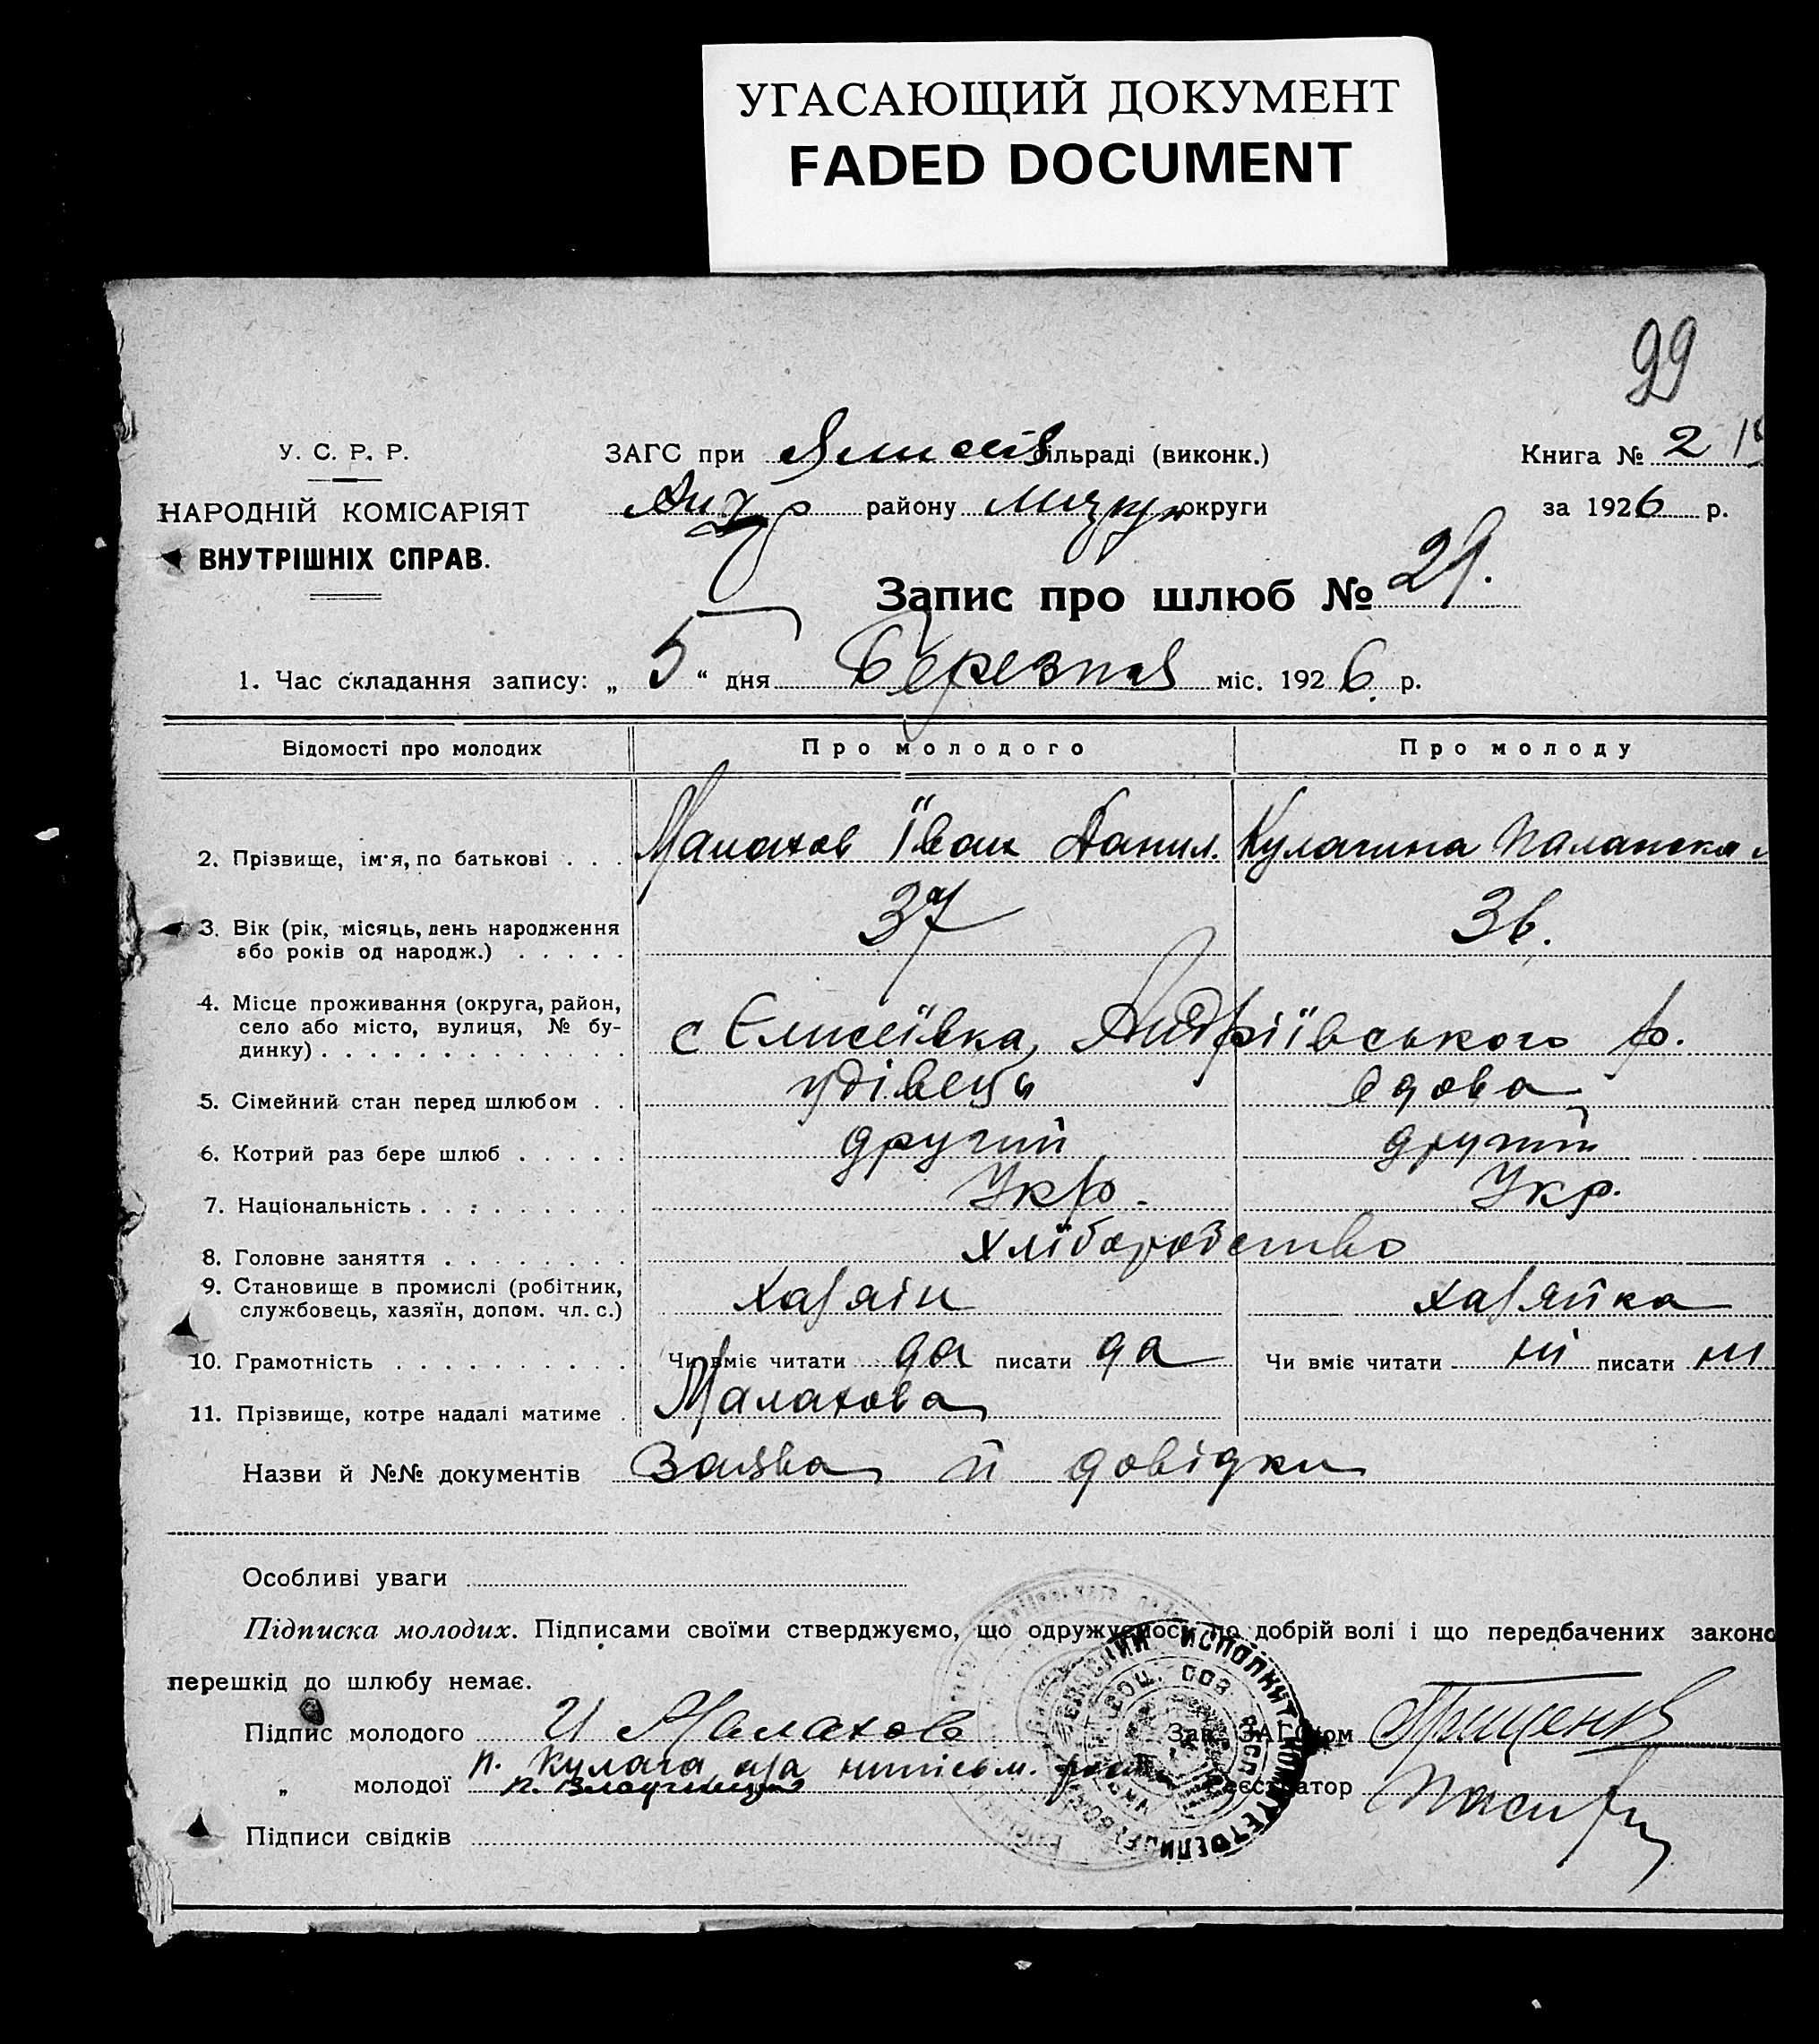 УГАСАЮЩИЙ ДОКУМЕНТ
FADED DOCUMENT
99
У. С. Р. Р.
НАРОДНІЙ КОМІСАРІЯТ
ВНУТРІШНІХ СПРАВ.
ЗАГС при Єлисеїв сільраді (виконк.)
району округи
Книга № 2
за 1926 р.
Запис про шлюб № 29.
1. Час складання запису: „ 5 “ дня Березня міс. 1926 р.
Відомості про молодих Про молодого Про молоду
2. Прізвище, ім'я, по батькові . . . Малахов Їван Данил. Кулагина Палажка
3. Вік (рік, місяць, день народження 37 36.
або років од народж.) . . . . .
4. Місце проживання (округа, район,
село або місто, вулиця, № бу-
динку) . . . . . . . . . . . . . с Єлисеївка, Андріївського р.
5. Сімейний стан перед шлюбом . . удівець вдова
6. Котрий раз бере шлюб . . . . . другий другий
7. Національність . . . . . . . . . Укр. Укр.
8. Головне заняття . . . . . . . . хліборобство
9. Становище в промислі (робітник,
службовець, хазяїн, допом. чл. с.) хазяін хазяйка
10. Грамотність . . . . . . . . . . . Чи вміє читати да писати да Чи вміє читати ні писати ні
11. Прізвище, котре надалі матиме . Малахова
Назви й №№ документів Заява й довідки
Особливі уваги
Підписка молодих. Підписами своїми стверджуємо, що одружуємось по добрій волі і що передбачених законо
перешкід до шлюбу немає.
Підпис молодого И Малахов Зав. ЗАГСом
„ молодої п. Кулага а за неписьм. Реєстратор
Підписи свідків